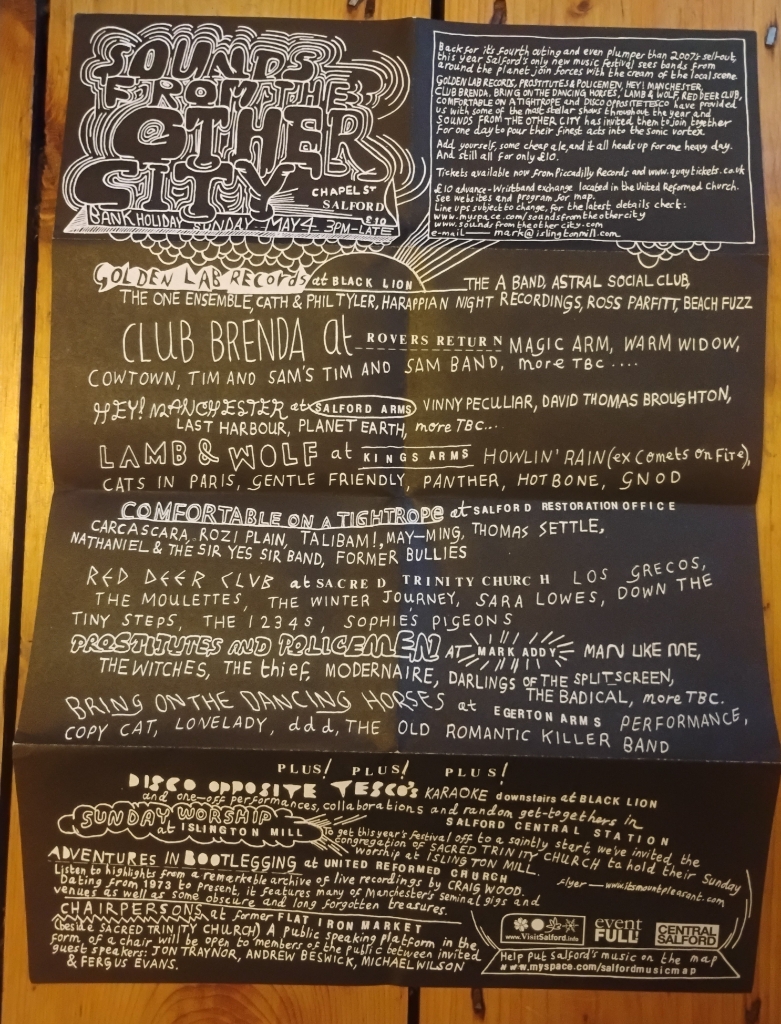 SOUNDS
FROM THE
OTHER
CITY
CHAPEL ST
SALFORD
£10
BANK HOLIDAY SUNDAY - MAY 4 - 3PM-LATE
Back for it's fourth outing and even plumper than 2007's sell-out,
this year Salford's only new music festival sees bands from
around the planet join forces with the cream of the local scene.
GOLDEN LAB RECORDS, PROSTITUTES & POLICEMEN, HEY! MANCHESTER,
CLUB BRENDA, BRING ON THE DANCING HORSES, LAMB & WOLF, RED DEER CLUB,
COMFORTABLE ON A TIGHTROPE and DISCO OPPOSITE TESCO have provided
us with some of the most stellar shows throughout the year and
SOUNDS FROM THE OTHER CITY has invited them to join together
for one day to pour their finest acts into the sonic vortex.
Add yourself, some cheap ale, and it all heads up for one heavy day.
And still all for only £10.
Tickets available now from Piccadilly Records and www.quaytickets.co.uk
£10 advance - Wristband exchange located in the United Reformed Church.
See websites and program for map.
Line ups subject to change, for the latest details check:
www.myspace.com/soundsfromtheothercity
www.soundsfromtheothercity.com
e-mail — mark@islingtonmill.com
GOLDEN LAB RECORDS at BLACK LION THE A BAND, ASTRAL SOCIAL CLUB,
THE ONE ENSEMBLE, CATH & PHIL TYLER, HARAPPIAN NIGHT RECORDINGS, ROSS PARFITT, BEACH FUZZ
CLUB BRENDA at ROVERS RETURN MAGIC ARM, WARM WIDOW,
COWTOWN, TIM AND SAM'S TIM AND SAM BAND, more TBC ....
HEY! MANCHESTER at SALFORD ARMS VINNY PECULIAR, DAVID THOMAS BROUGHTON,
LAST HARBOUR, PLANET EARTH, more TBC...
LAMB & WOLF at KINGS ARMS HOWLIN' RAIN (ex Comets on Fire),
CATS IN PARIS, GENTLE FRIENDLY, PANTHER, HOTBONE, GNOD
COMFORTABLE ON A TIGHTROPE at SALFORD RESTORATION OFFICE
CARCASCARA, ROZI PLAIN, TALIBAM!, MAY-MING, THOMAS SETTLE,
NATHANIEL & THE SIR YES SIR BAND, FORMER BULLIES
RED DEER CLUB at SACRED TRINITY CHURCH LOS GRECOS,
THE MOULETTES, THE WINTER JOURNEY, SARA LOWES, DOWN THE
TINY STEPS, THE 1234s, SOPHIE'S PIGEONS
PROSTITUTES AND POLICEMEN AT MARK ADDY MAN LIKE ME,
THE WITCHES, THE thief, MODERNAIRE, DARLINGS OF THE SPLITSCREEN,
THE BADICAL, more TBC.
BRING ON THE DANCING HORSES at EGERTON ARMS PERFORMANCE,
COPY CAT, LONELADY, ddd, THE OLD ROMANTIC KILLER BAND
PLUS! PLUS! PLUS!
DISCO OPPOSITE TESCO's KARAOKE downstairs at BLACK LION
and one-off performances, collaborations and random get-togethers in
SALFORD CENTRAL STATION
SUNDAY WORSHIP
at ISLINGTON MILL
To get this year's festival off to a saintly start, we've invited the
congregation of SACRED TRINITY CHURCH to hold their Sunday
worship at ISLINGTON MILL.
flyer — www.itsmountpleasant.com
ADVENTURES IN BOOTLEGGING at UNITED REFORMED CHURCH
Listen to highlights from a remarkable archive of live recordings by CRAIG WOOD.
Dating from 1973 to present, it features many of Manchester's seminal gigs and
venues as well as some obscure and long forgotten treasures.
CHAIRPERSONS at former FLAT IRON MARKET
(beside SACRED TRINITY CHURCH) A public speaking platform in the
form of a chair will be open to members of the public between invited
guest speakers: JON TRAYNOR, ANDREW BESWICK, MICHAEL WILSON
& FERGUS EVANS.
www.VisitSalford.info
event
FULL
CENTRAL
SALFORD
Help put Salford's music on the map
www.myspace.com/salfordmusicmap